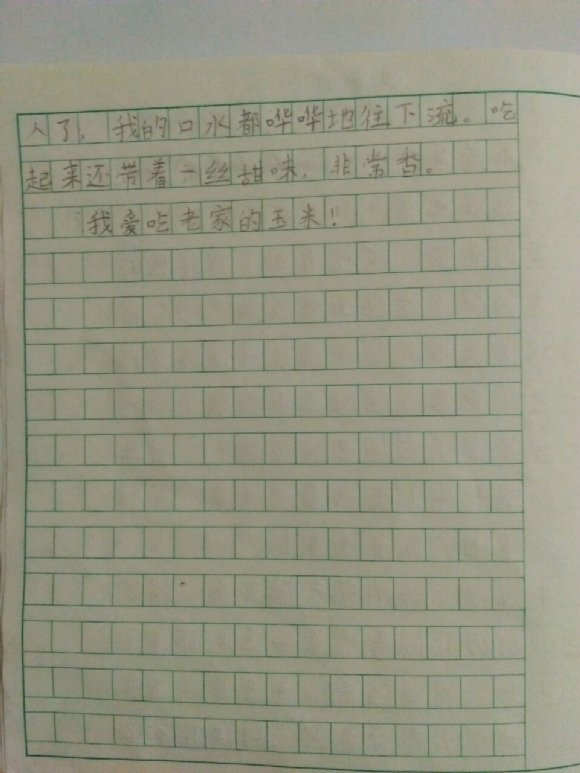 人了，我的口水都哗哗地往下流。吃
起来还带着一丝甜味，非常香。
我爱吃老家的玉米！！